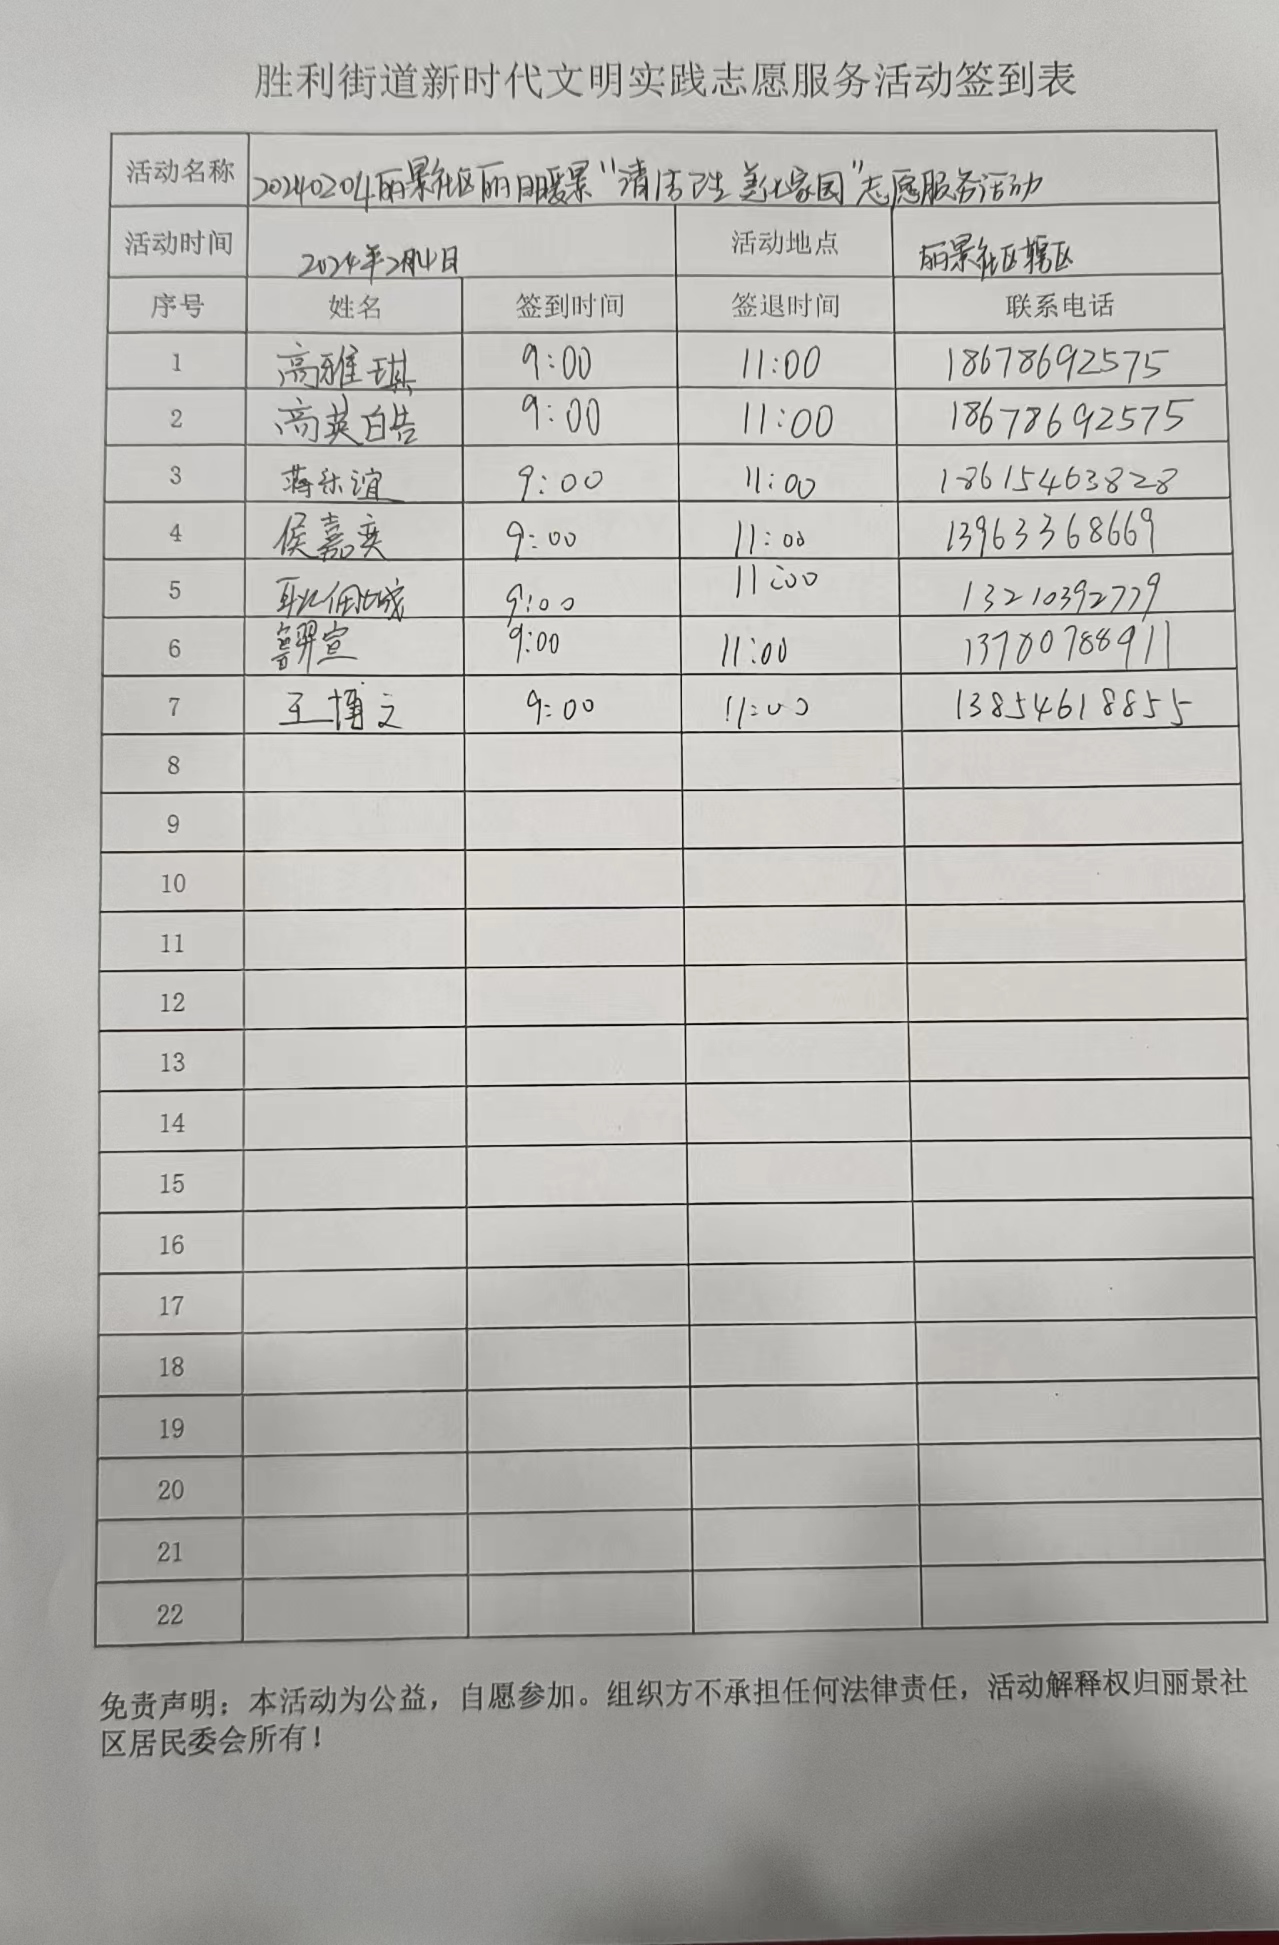 胜利街道新时代文明实践志愿服务活动签到表
活动名称 20240204丽景社区丽日暖景“清洁卫生 美化家园”志愿服务活动
活动时间 2024年2月4日 活动地点 丽景社区辖区
序号 姓名 签到时间 签退时间 联系电话
1 高雅琪 9:00 11:00 18678692575
2 高英皓 9:00 11:00 18678692575
3 蒋乐谊 9:00 11:00 18615463828
4 侯嘉奕 9:00 11:00 13963368669
5 9:00 11:00 13210392779
6 9:00 11:00 13780788911
7 王博文 9:00 11:00 13854618855
8
9
10
11
12
13
14
15
16
17
18
19
20
21
22
免责声明：本活动为公益，自愿参加。组织方不承担任何法律责任，活动解释权归丽景社
区居民委会所有！